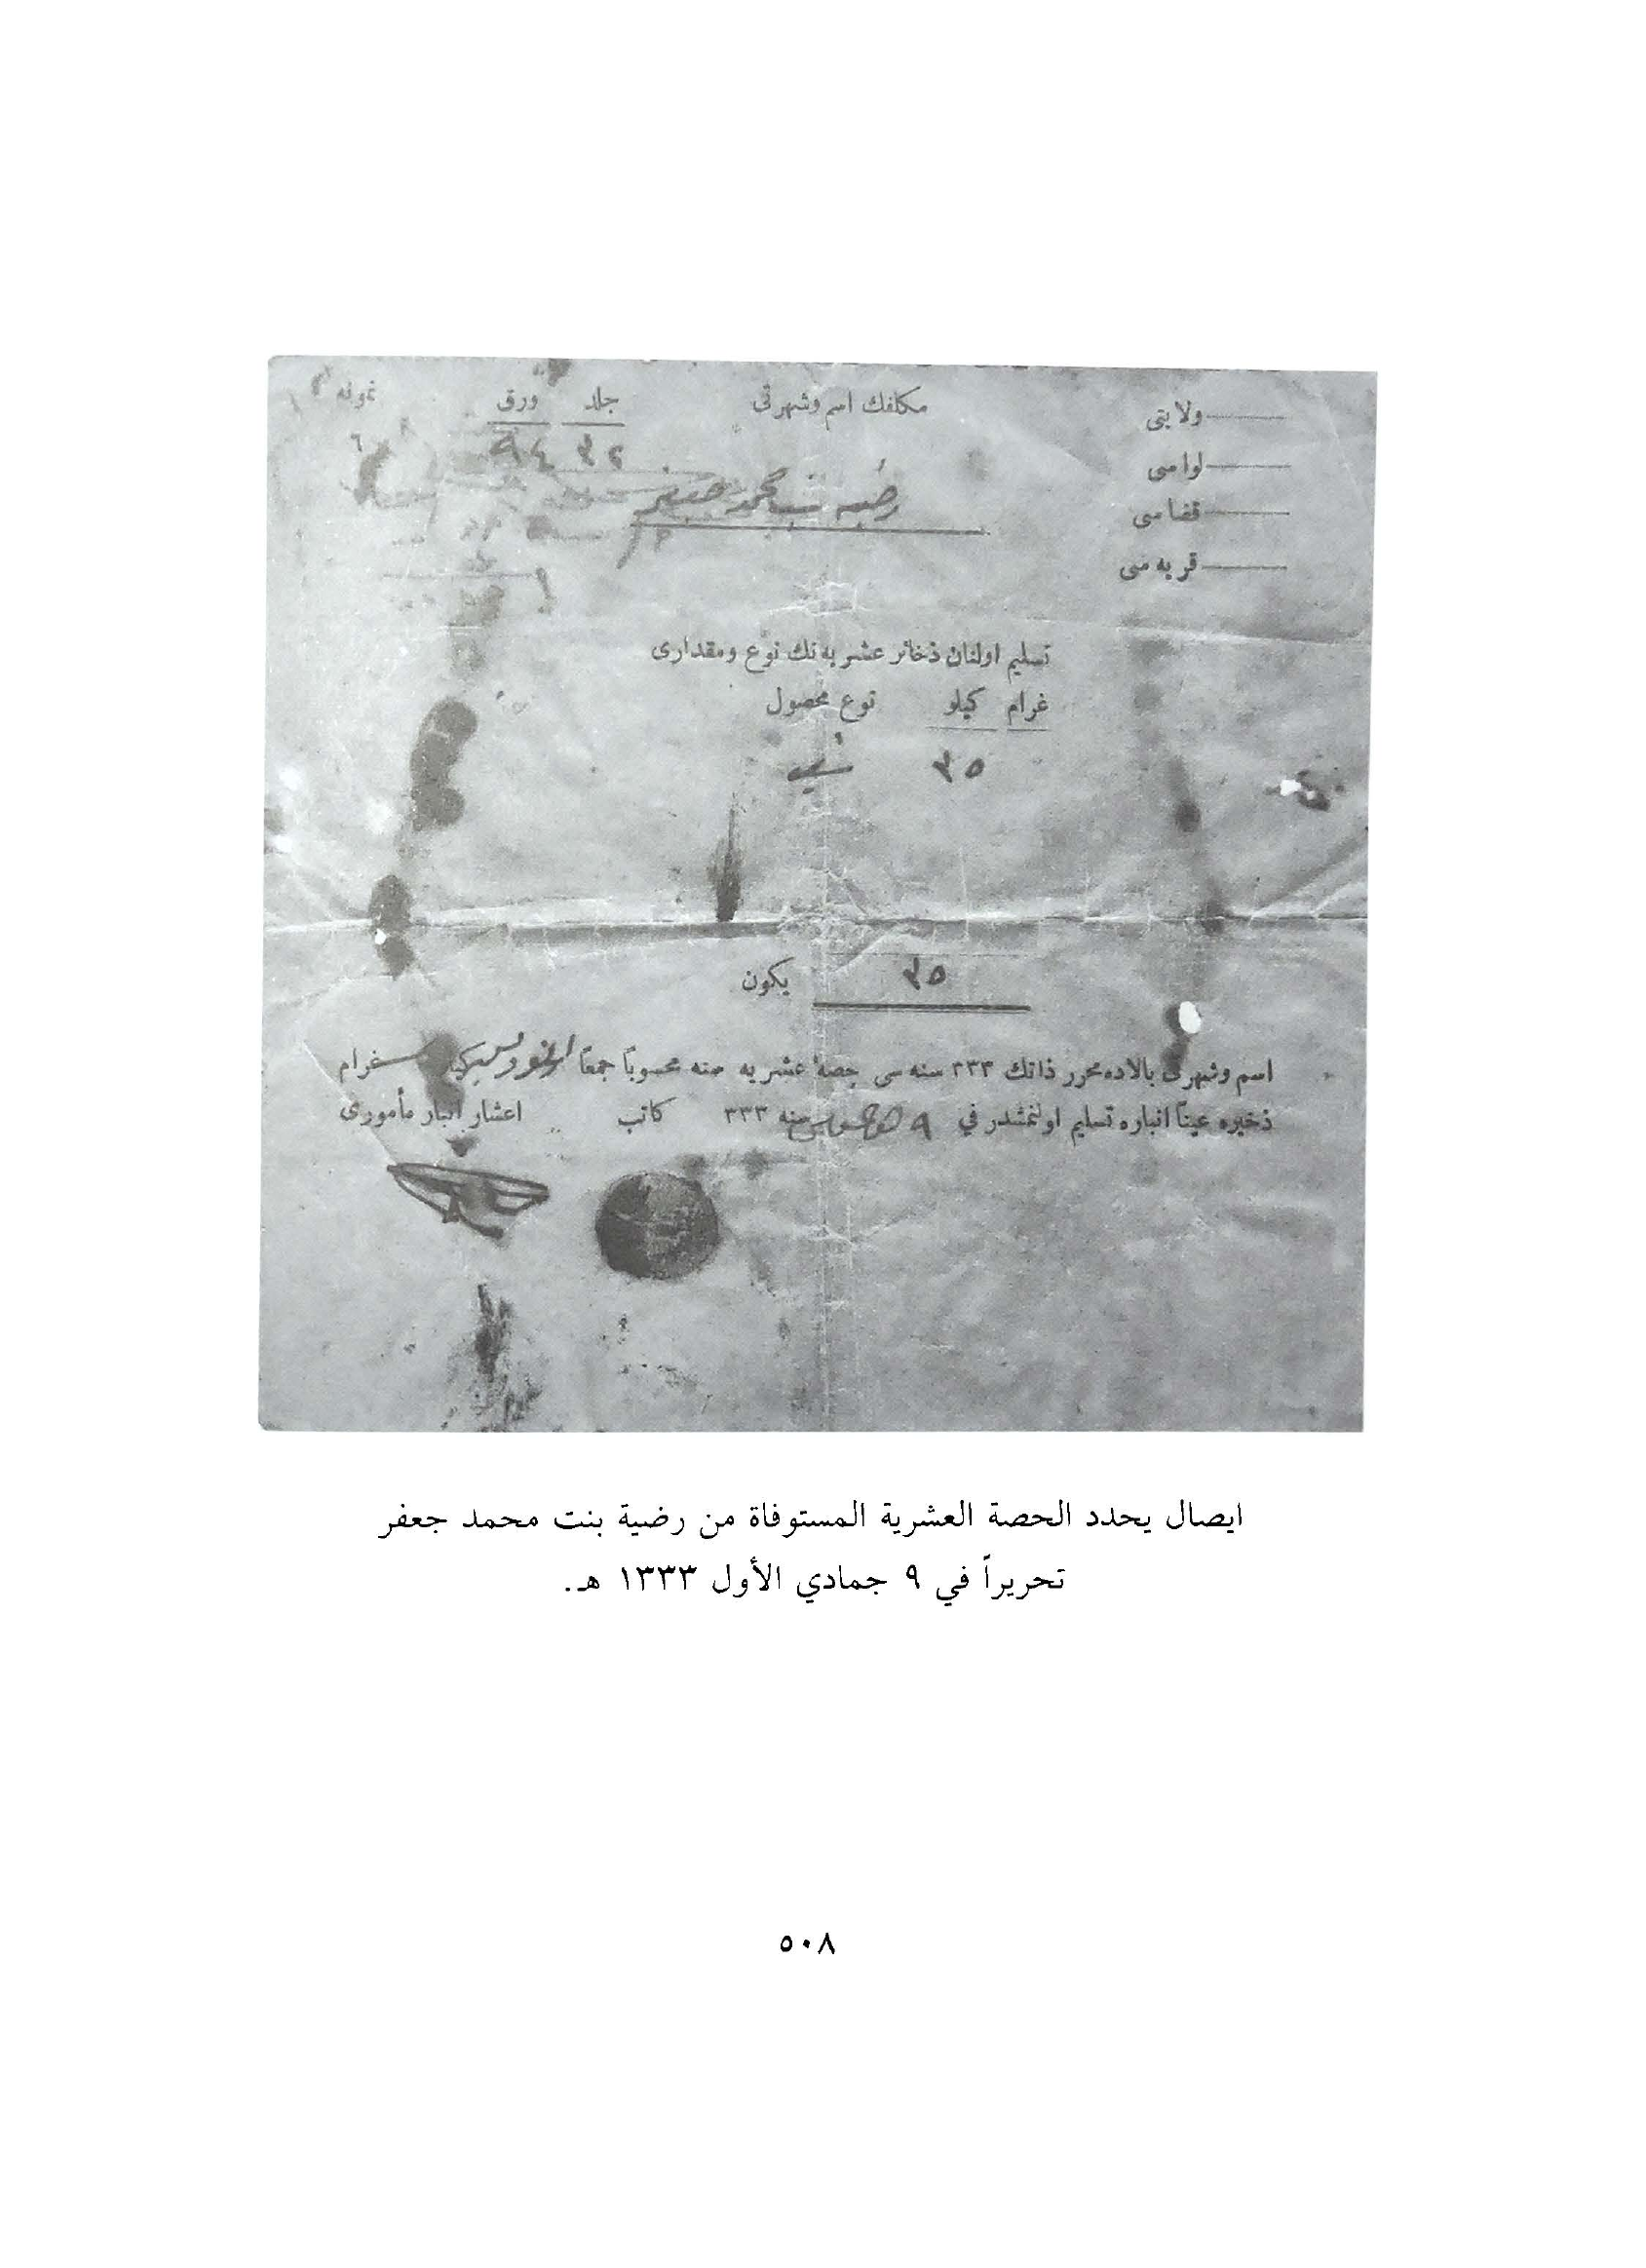 ولايتى
لواسى
قضاسى
قريه سى
مكلفك اسم وشهرتى
جلد ورق
نمونه
٩٤
رضيه بنت محمد جعفر
تسليم اولنان ذخائر عشريه نك نوع ومقدارى
غرام كيلو نوع محصول
٣٥
٣٥ يكون
اسم وشهرتى بالاده محرر ذاتك ٣٣٣ سنه سى حصۀ عشريه سنه محسوباً جمعاً غرام
ذخيره عيناً انباره تسليم اولنمشدر في ٩ سنه ٣٣٣ كاتب اعشار انبار مأمورى
ايصال يحدد الحصة العشرية المستوفاة من رضية بنت محمد جعفر
تحريراً في ٩ جمادي الأول ١٣٣٣ هـ.
٥٠٨